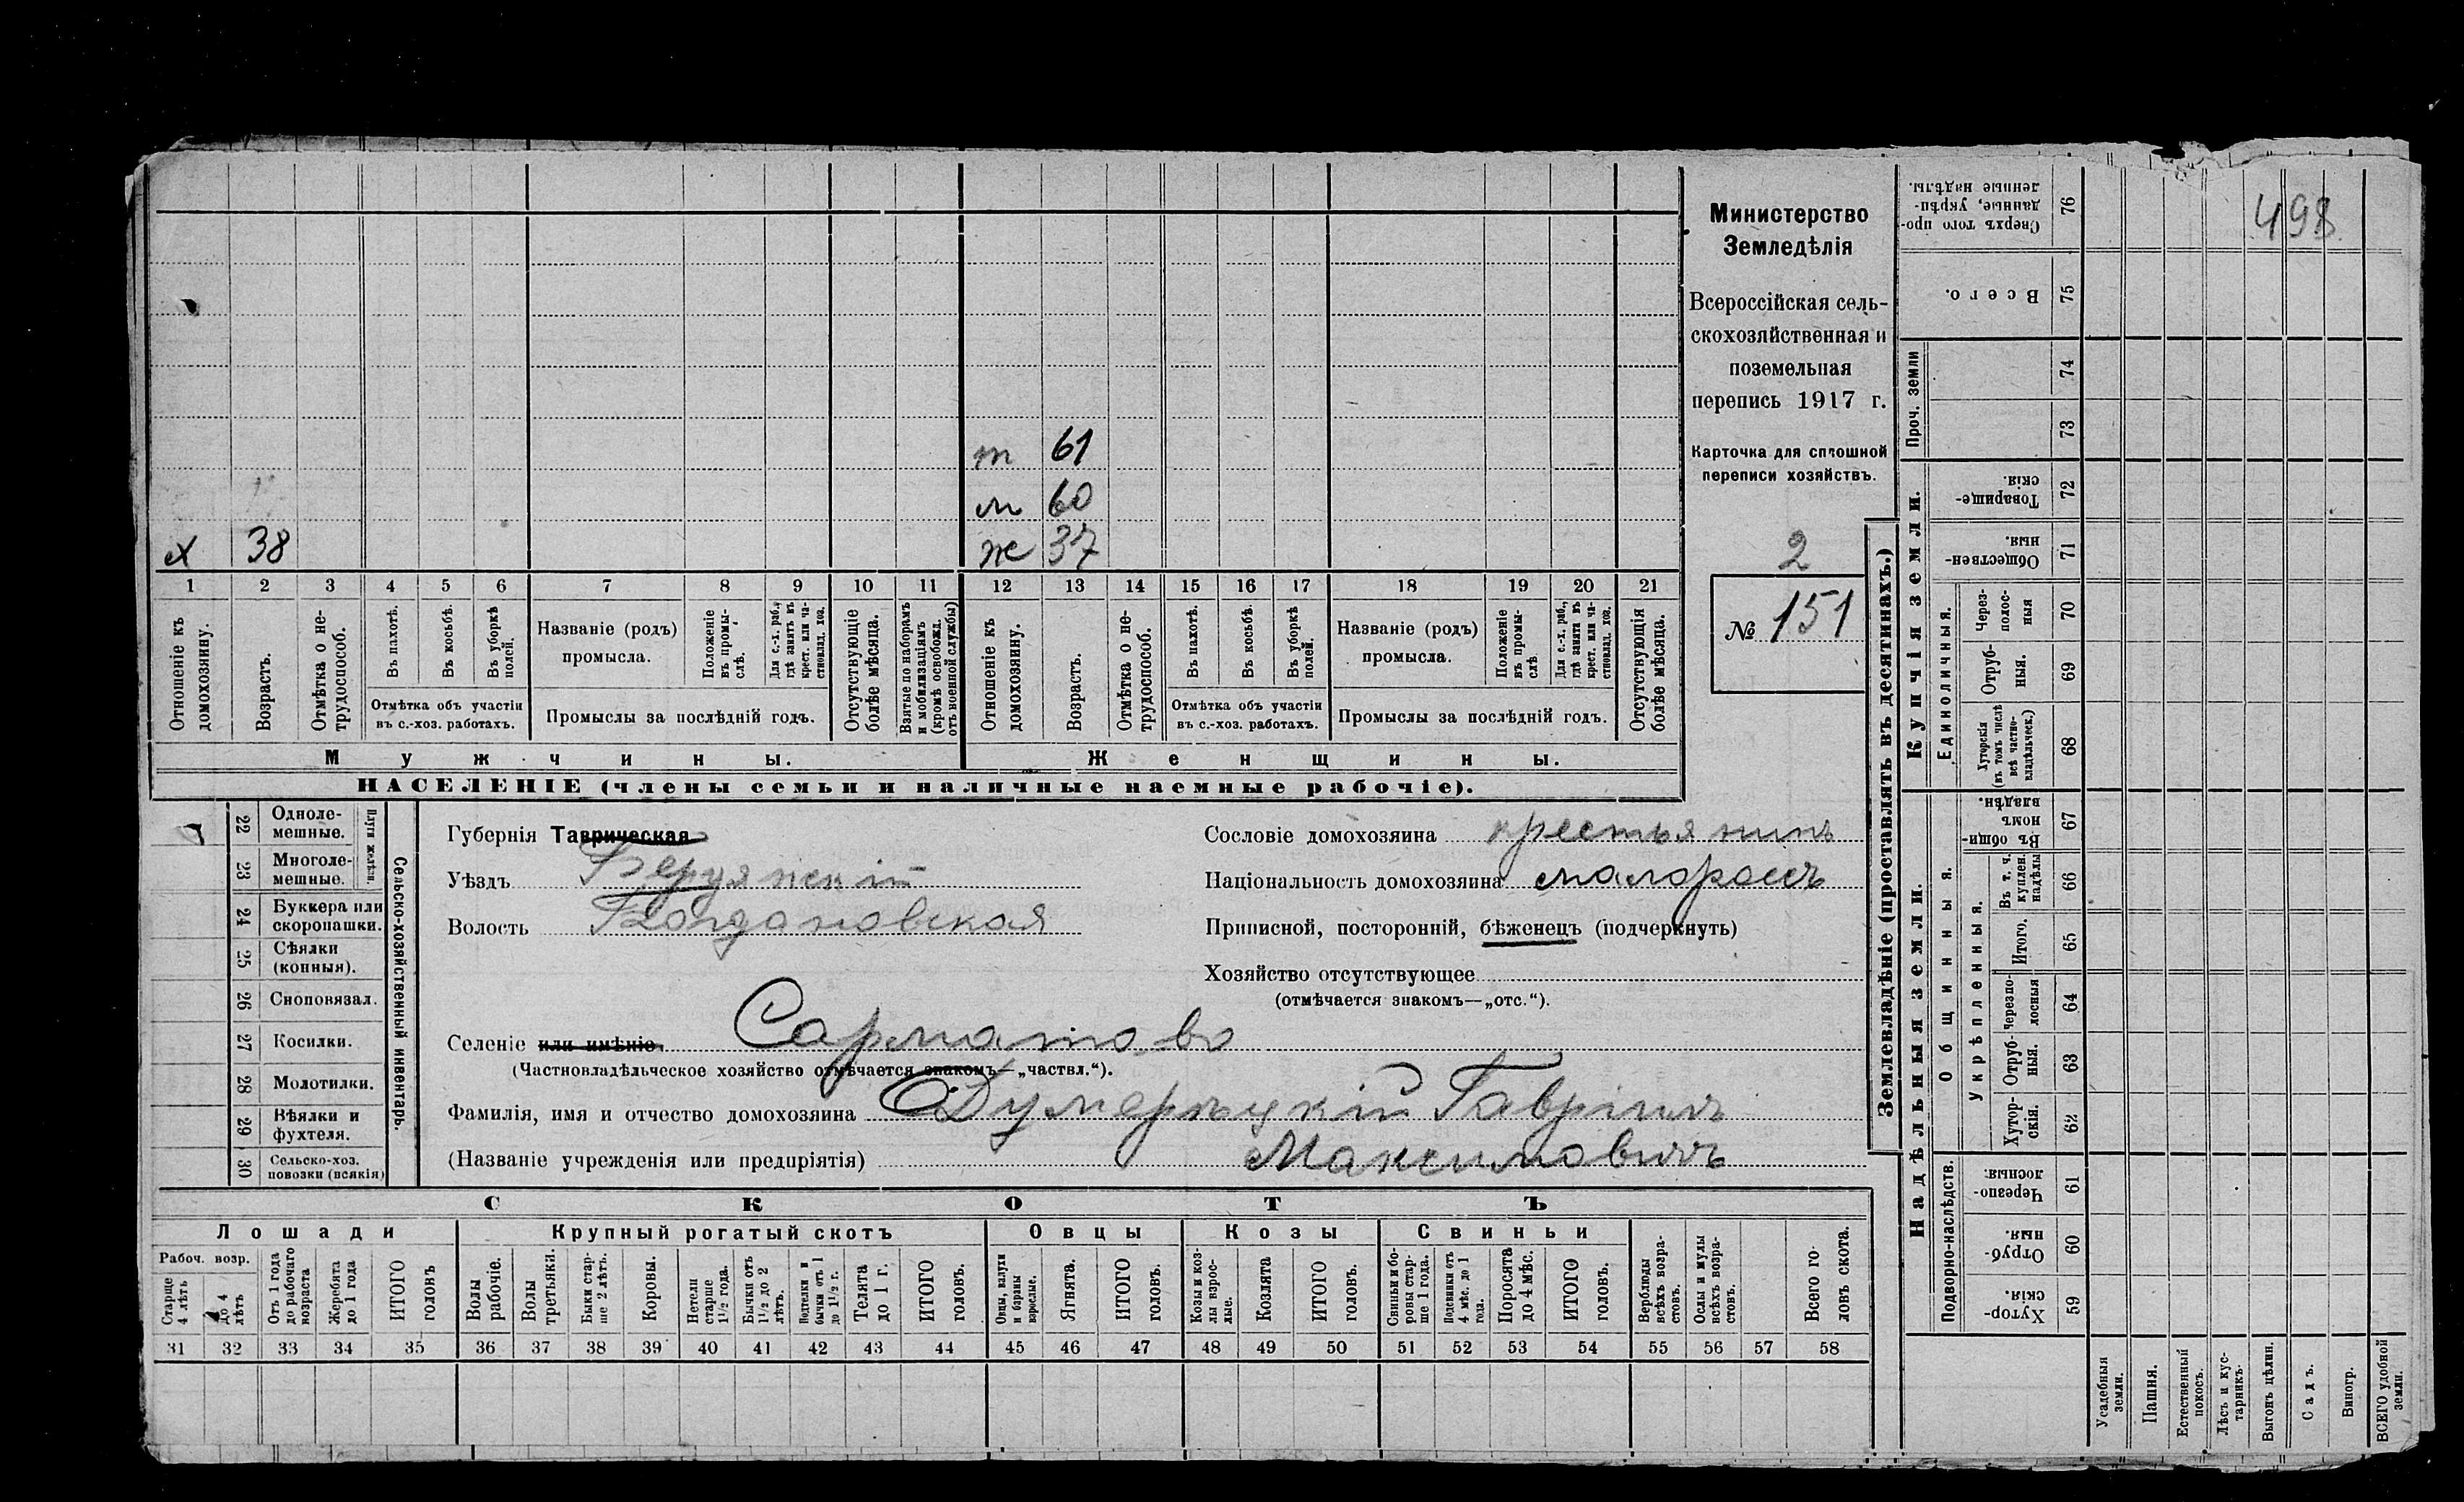 498
Министерство
Земледѣлія
Всероссійская сель-
скохозяйственная и
поземельная
перепись 1917 г.
Карточка для сплошной
переписи хозяйствъ.
2
№ 151
т 61
м 60
х 38 ж 37
1 2 3 4 5 6 7 8 9 10 11 12 13 14 15 16 17 18 19 20 21
Отношеніе къ домохозяину.
Возрастъ.
Отмѣтка о не-трудоспособ.
Въ пахотѣ.
Въ косьбѣ.
Въ уборкѣ полей.
Отмѣтка объ участіи
въ с.-хоз. работахъ.
Названіе (родъ)
промысла.
Положеніе въ промы-слѣ.
Для с.-х. раб., гдѣ занятъ въ крест. или ча-стновлад. хоз.
Промыслы за послѣдній годъ.
Отсутствующіе болѣе мѣсяца.
Взятые по наборамъ и мобилизаціямъ (кромѣ освобожд. отъ военной службы)
Отношеніе къ домохозяину.
Возрастъ.
Отмѣтка о не-трудоспособ.
Въ пахотѣ.
Въ косьбѣ.
Въ уборкѣ полей.
Отмѣтка объ участіи
въ с.-хоз. работахъ.
Названіе (родъ)
промысла.
Положеніе въ промы-слѣ
Для с.-х. раб., гдѣ занята въ крест. или ча-стновлад. хоз.
Промыслы за послѣдній годъ.
Отсутствующія болѣе мѣсяца.
Мужчины. Женщины.
НАСЕЛЕНІЕ (члены семьи и наличные наемные рабочіе).
22 Одноле-мешные.
23 Многоле-мешные.
Плуги желѣзн.
24 Буккера или скоропашки.
25 Сѣялки (конныя).
26 Сноповязал.
27 Косилки.
28 Молотилки.
29 Вѣялки и фухтеля.
30 Сельско-хоз. повозки (всякія)
Сельско-хозяйственный инвентарь.
Губернія Таврическая
Уѣздъ Бердянскій
Волость Богдановская
Сословіе домохозяина крестьянинъ
Національность домохозяина малороссъ
Приписной, посторонній, бѣженецъ (подчеркнуть)
Хозяйство отсутствующее
(отмѣчается знакомъ—„отс.“).
Селеніе или имѣніе
(Частновладѣльческое хозяйство отмѣчается знакомъ—„частвл.“).
Фамилія, имя и отчество домохозяина Гаврiилъ
(Названіе учрежденія или предпріятія) Максимовичъ
СКОТЪ
Лошади Крупный рогатый скотъ Овцы Козы Свиньи
Рабоч. возр.
Старше 4 лѣтъ
до 4 лѣтъ
Отъ 1 года до рабочаго возраста
Жеребята до 1 года
ИТОГО головъ
Волы рабочіе.
Волы третьяки.
Быки стар-ше 2 лѣтъ.
Коровы.
Нетели старше 1½ года.
Бычки отъ 1½ до 2 лѣтъ.
Подтелки и бычки отъ 1 до 1½ г.
Телята до 1 г.
ИТОГО головъ.
Овцы, валухи и бараны взрослые.
Ягнята.
ИТОГО головъ.
Козы и коз-лы взрос-лые.
Козлята
ИТОГО головъ.
Свиньи и бо-ровы стар-ше 1 года.
Подсвинки отъ 4 мѣс. до 1 года.
Поросята до 4 мѣс.
ИТОГО головъ.
Верблюды всѣхъ возра-стовъ.
Ослы и мулы всѣхъ возра-стовъ.
Всего го-ловъ скота.
31 32 33 34 35 36 37 38 39 40 41 42 43 44 45 46 47 48 49 50 51 52 53 54 55 56 57 58
Землевладѣніе (проставлять въ десятинахъ.)
Купчія земли.
Надѣльныя земли.
Проч. земли
Единоличныя.
Общинныя.
Укрѣпленныя.
Подворно-наслѣдств.
Сверхъ того про-данные, укрѣп-ленные надѣлы. 76
Всего. 75
74
73
Товарище-скія. 72
Обществен-ныя. 71
Через-полос-ныя 70
Отруб-ныя. 69
Хуторскія (въ томъ числѣ всѣ частно-владѣльческ.) 68
Въ общин-номъ владѣн. 67
Въ т. ч. куплен. надѣлы 66
Итого. 65
Черезпо-лосныя 64
Отруб-ныя. 63
Хутор-скія. 62
Черезпо-лосныя. 61
Отруб-ныя. 60
Хутор-скія. 59
Усадебныя земли.
Пашня.
Естественный покосъ.
Лѣсъ и кус-тарникъ.
Выгонъ цѣлин.
Садъ.
Виногр.
ВСЕГО удобной земли.